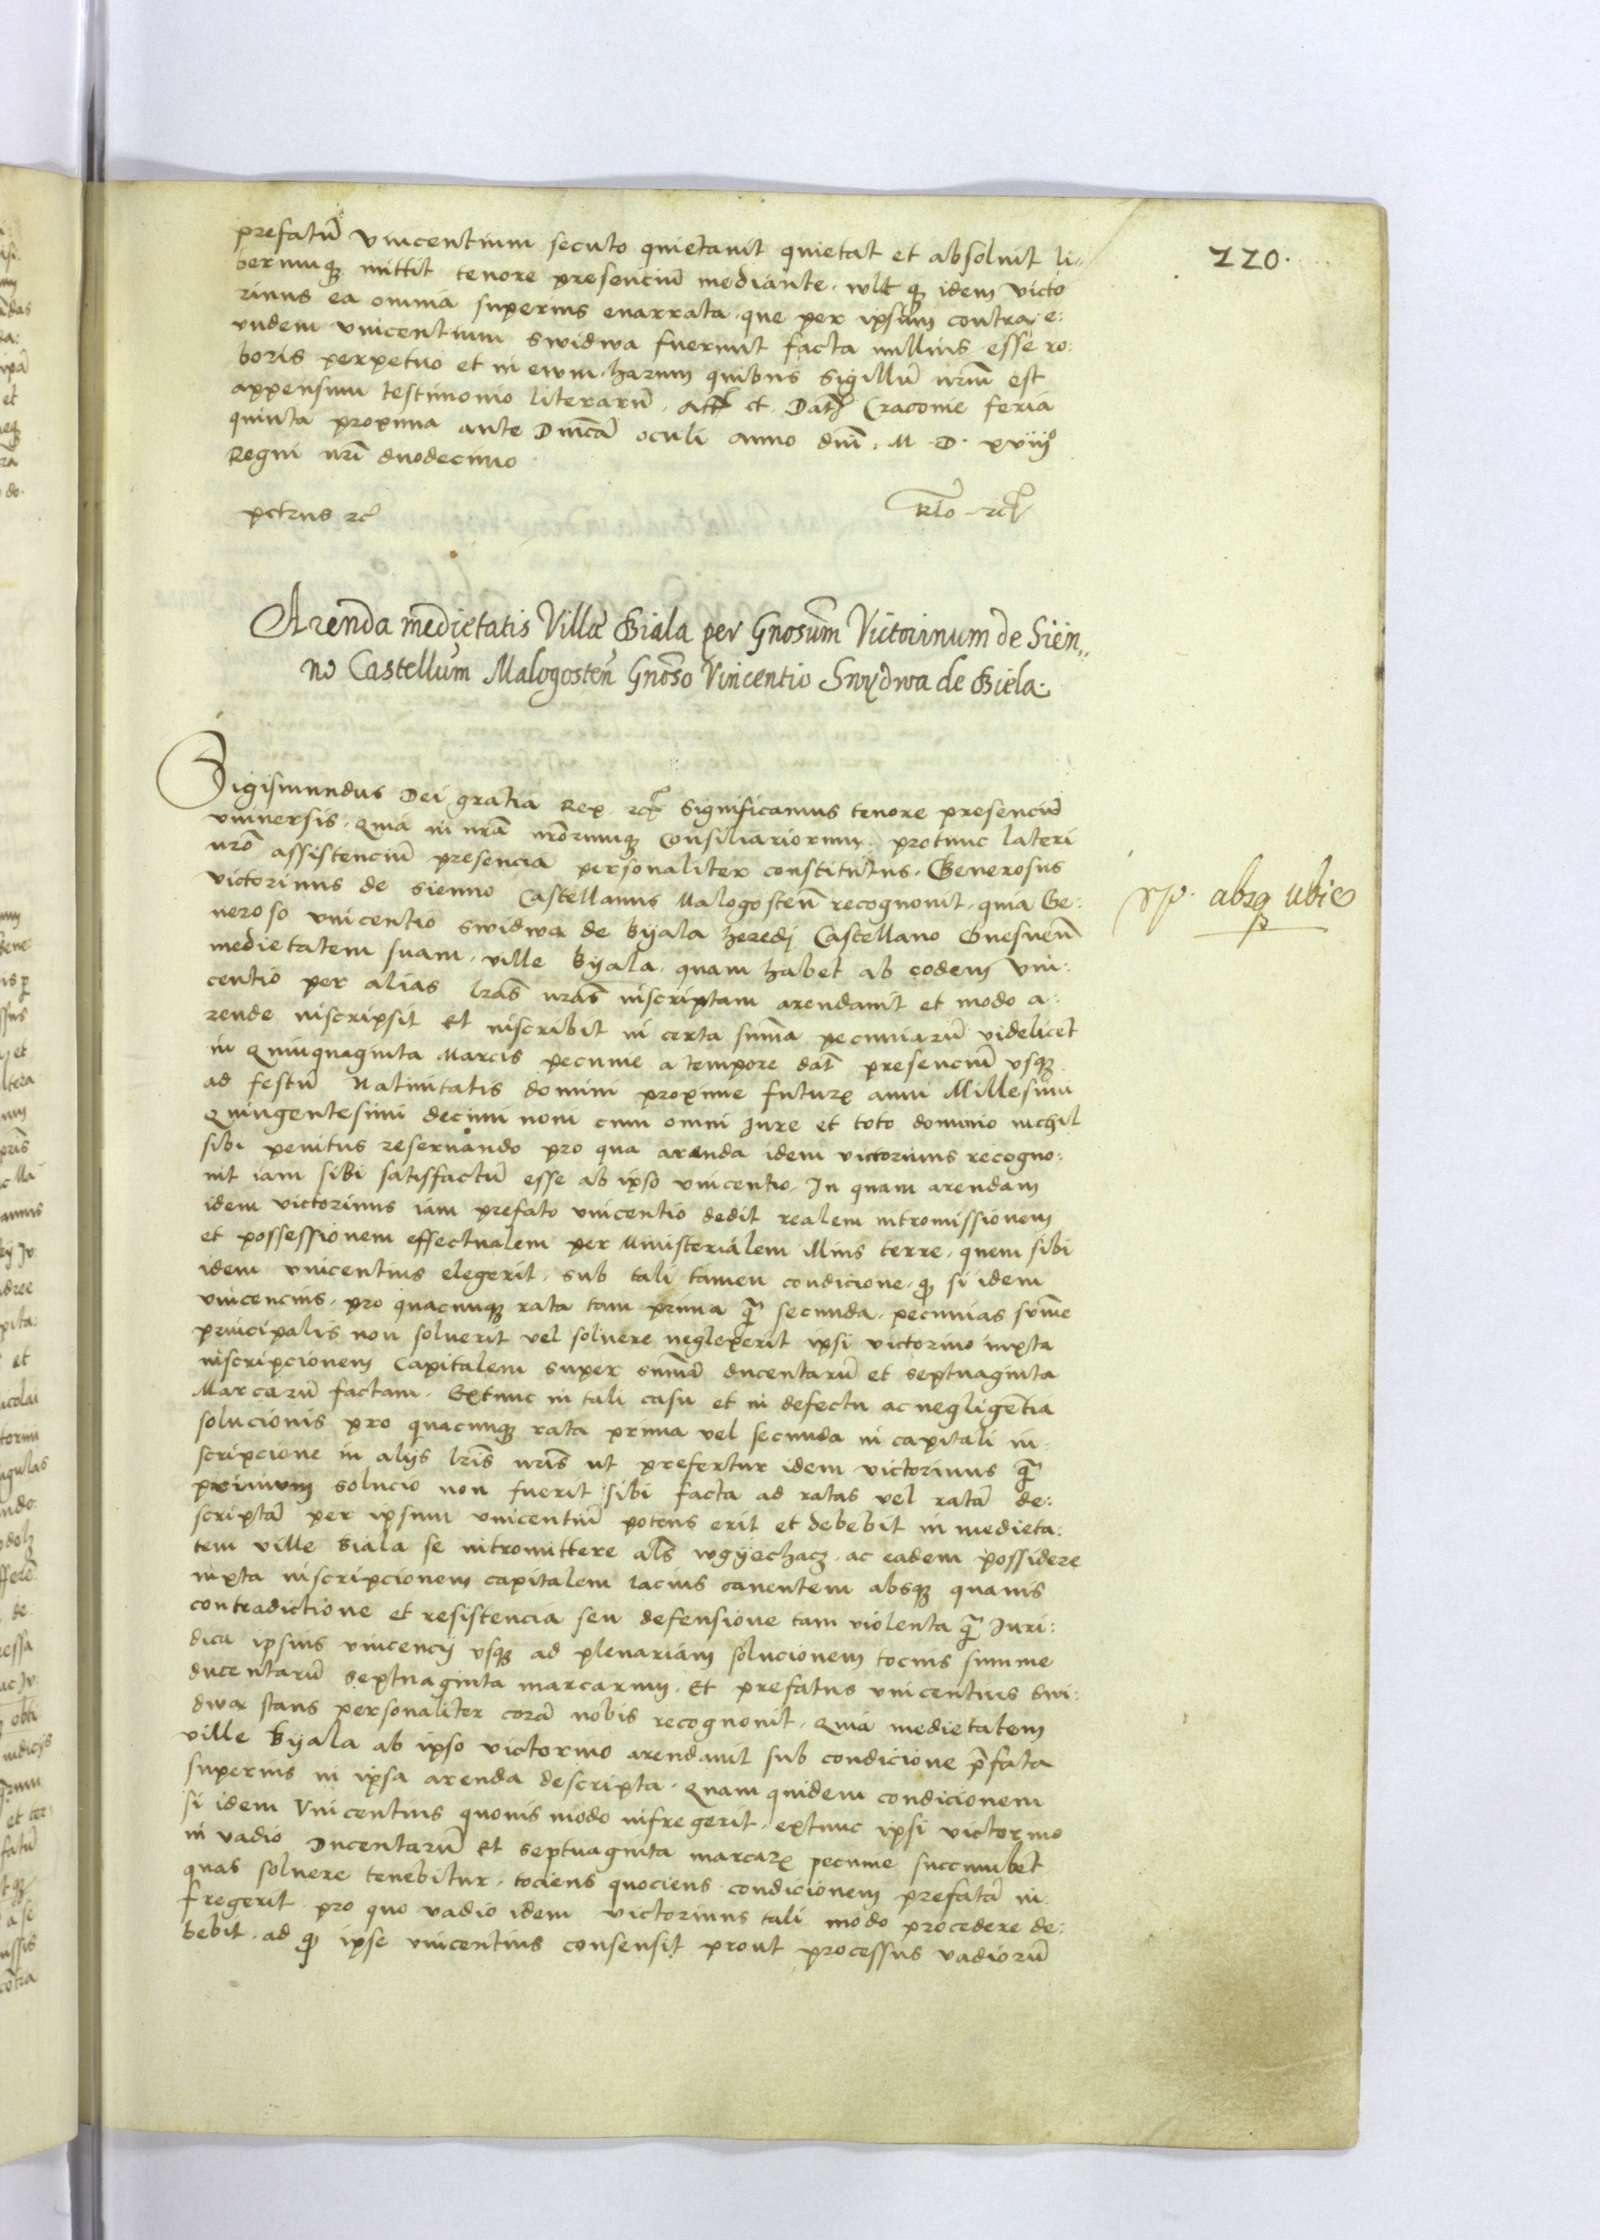 220.
prefatu͂ vincentium secuto quietauit quietat et absoluit li-
berumqꝫ mittit tenore presenciu͂ mediante. wlt qꝫ idem victo
rinus ea omnia superius enarrata. que per ipsum contra e:
undem vincentium Swidwa fuerunt facta nullius esse ro:
boris perpetuo et in ewm. harum quibus Sigillu͂ nrm͂ est
appensum testimonio literaru͂. Dat͂ Cracouie feria
quinta proxima ante Dnica͂ oculi anno dni͂. M. D. xviiiº
Regni nrj͂ duodecimo
petrus rc͂
Arenda medietatis Villæ Biala per Gnosum͂ Victorinum de Sien-
no Castellum͂ Malogosten͂ Gnoso͂ Vincentio Swydwa de Biela.
Sigismundus Dei gratia Rex rc͂ Significamus tenore presenciu͂
vniuersis. Quia in nra͂ nror͂umqꝫ Consiliariorum protunc lateri
nro͂ assistenciu͂ presencia personaliter constitutus. Generosus
victorinus de Sienno Castellanus Malogosten͂ recognouit. quia Ge:
neroso vincentio Swidwa de Byala heredj Castellano Gnesnen͂
sp. absqꝫ ubi
medietatem suam. ville Byala. quam habet ab eodem vin:
centio per alias lras͂ nras͂ inscriptam arendauit et modo a:
rende inscripsit et inscribit in certa suma͂ pecuniaru͂ videlicet
in Quinquaginta Marcis pecunie a tempore dat͂ presenciu͂ vsqꝫ
ad festu͂ Natiuitatis domini proxime futuri anni Millesimi
Quingentesimi decimi noni cum omni Jure et toto dominio nichil
sibi penitus reseruando pro qua arenda idem victorinus recogno:
uit iam sibi satisfactu͂ esse ab ipso vincentio. In quam arendam
idem victorinus iam prefato vincentio dedit realem intromissionem
et possessionem effectualem per Ministerialem illius terre. quem sibi
idem vincentius elegerit. sub tali tamen condicione. qꝫ si idem
vincencius. pro quacunqꝫ rata tam prima qꝫ͂ secunda. pecunias sum͂e
principalis non soluerit vel soluere neglexerit ipsi victorino iuxta
inscripcionem Capitalem super suma͂ ducentaru͂ et septuaginta
Marcaru͂ factam. Extunc in tali casu et in defectu ac negligen͂tia
solucionis pro quacunqꝫ rata prima vel secunda in capitali in:
scripcione in alijs lris͂ nris͂ ut prefertur idem victorinus qꝫ͂
primum solucio non fuerit sibi facta ad ratas vel rata͂ de:
scripta͂ per ipsum vincentiu͂ potens erit et debebit in medieta:
tem ville Biala se intromittere als͂ wgyechacz. ac eadem possidere
iuxta inscripcionem capitalem lacius canentem absqꝫ quauis
contradictione et resistencia seu defensione tam violenta qꝫ͂ Juri:
dica ipsius vincencij vsqꝫ ad plenariam solucionem tocius summe
ducentaru͂ septuaginta marcarum. Et prefatus vincentius Swi:
dwa stans personaliter cora͂ nobis recognouit. Quia medietatem
ville Byala ab ipso victorino arendauit sub condicione p͂fata
superius in ipsa arenda descripta. Quam quidem condicionem
si idem Vincentius quouis modo infregerit. extunc ipsi victorino
in vadio Ducentaru͂ et septuaginta marcarꝝ pecunie succumbet
quas soluere tenebitur. tociens quociens condicionem prefata͂ in
fregerit pro quo vadio idem victorinus tali modo procedere de:
bebit. ad qꝫ ipse vincentius consensit prout processus vadioru͂